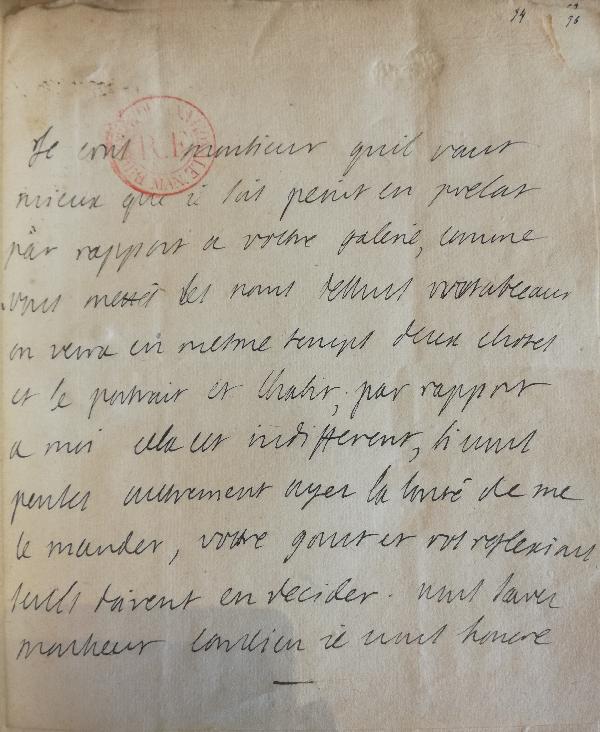 94 96
R.F.
Je crois monsieur quil vaut
mieux que je sois peint en prelat
par rapport a vostre galerie, comme
vous mettés les noms dessus vos tableaux
on verra en mesme temps deux choses
et le portrait et , par rapport
a moi cela est indifferent, si vous
penses autrement ayez la bonté de me
le mander, vostre gout et vos reflexions
seuls doivent en decider. vous savez
monsieur combien je vous honore